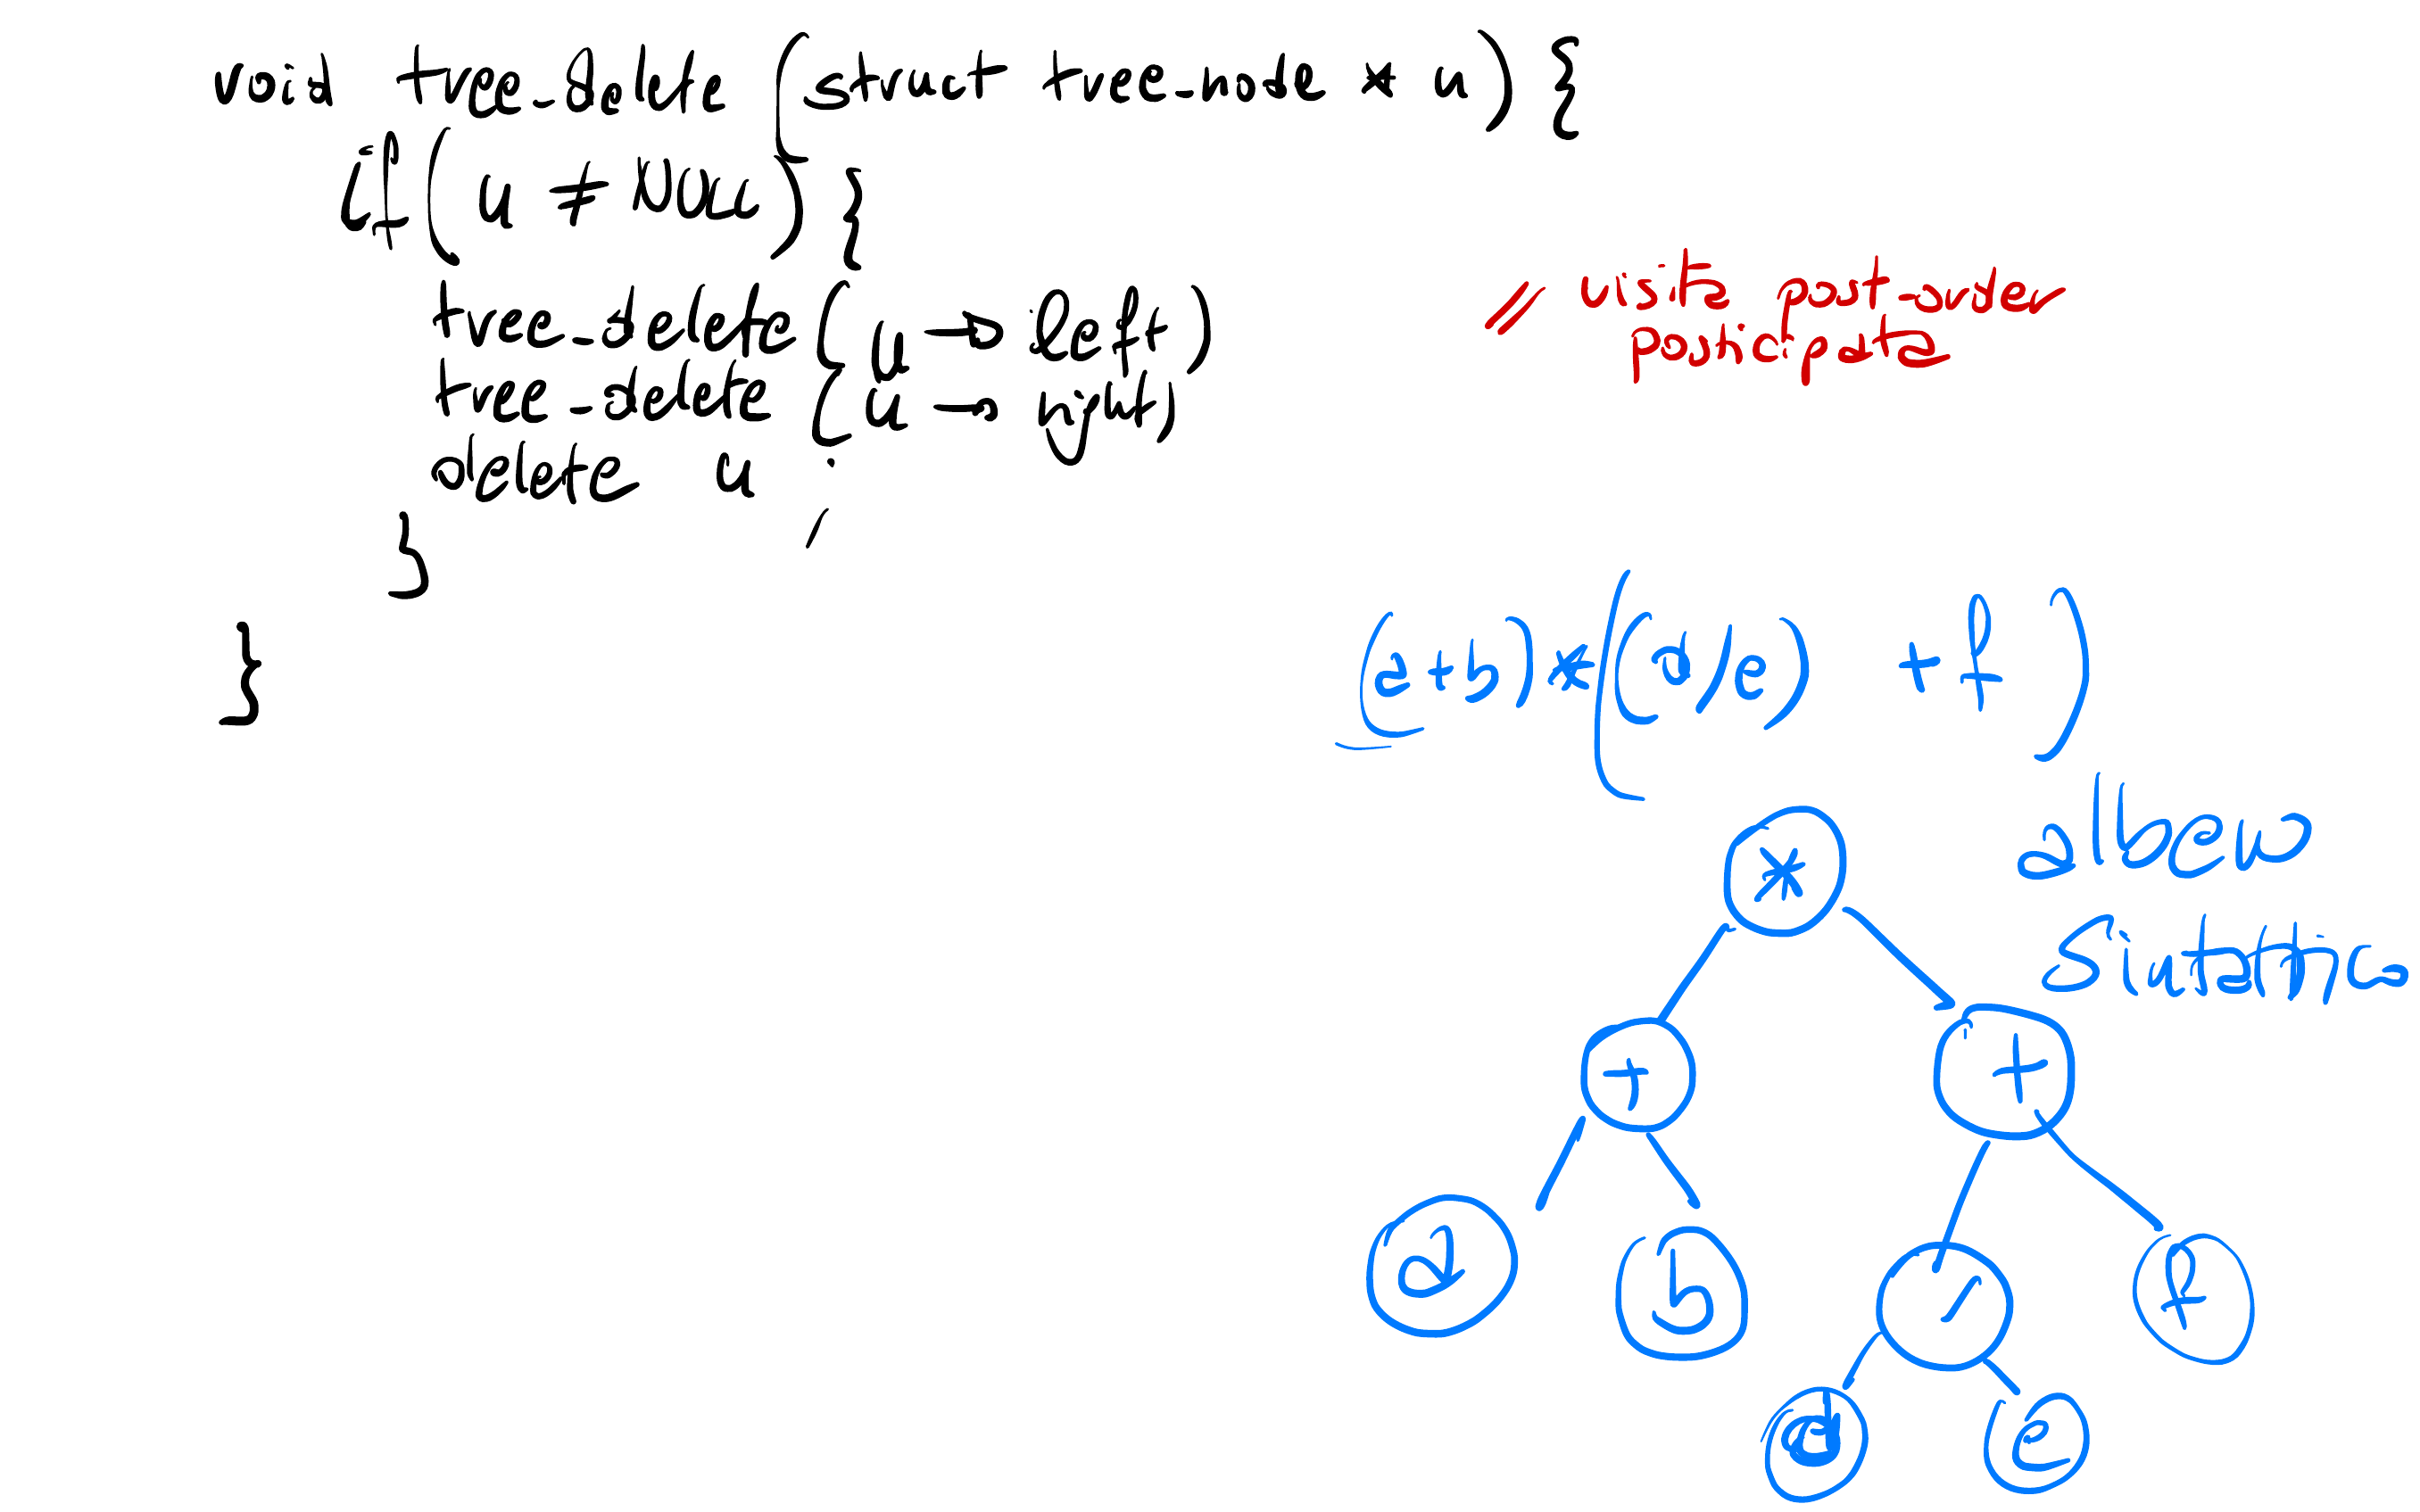 void tree_delete (struct tree_node * u) {
if (u ≠ NULL) {
tree_delete (u → left)
tree_delete (u → right)
delete u ;
}
}
// visita post-order
posticipata
(a+b) * ((d/e) + f)
albero
sintattico
*
+ +
a b / f
d e